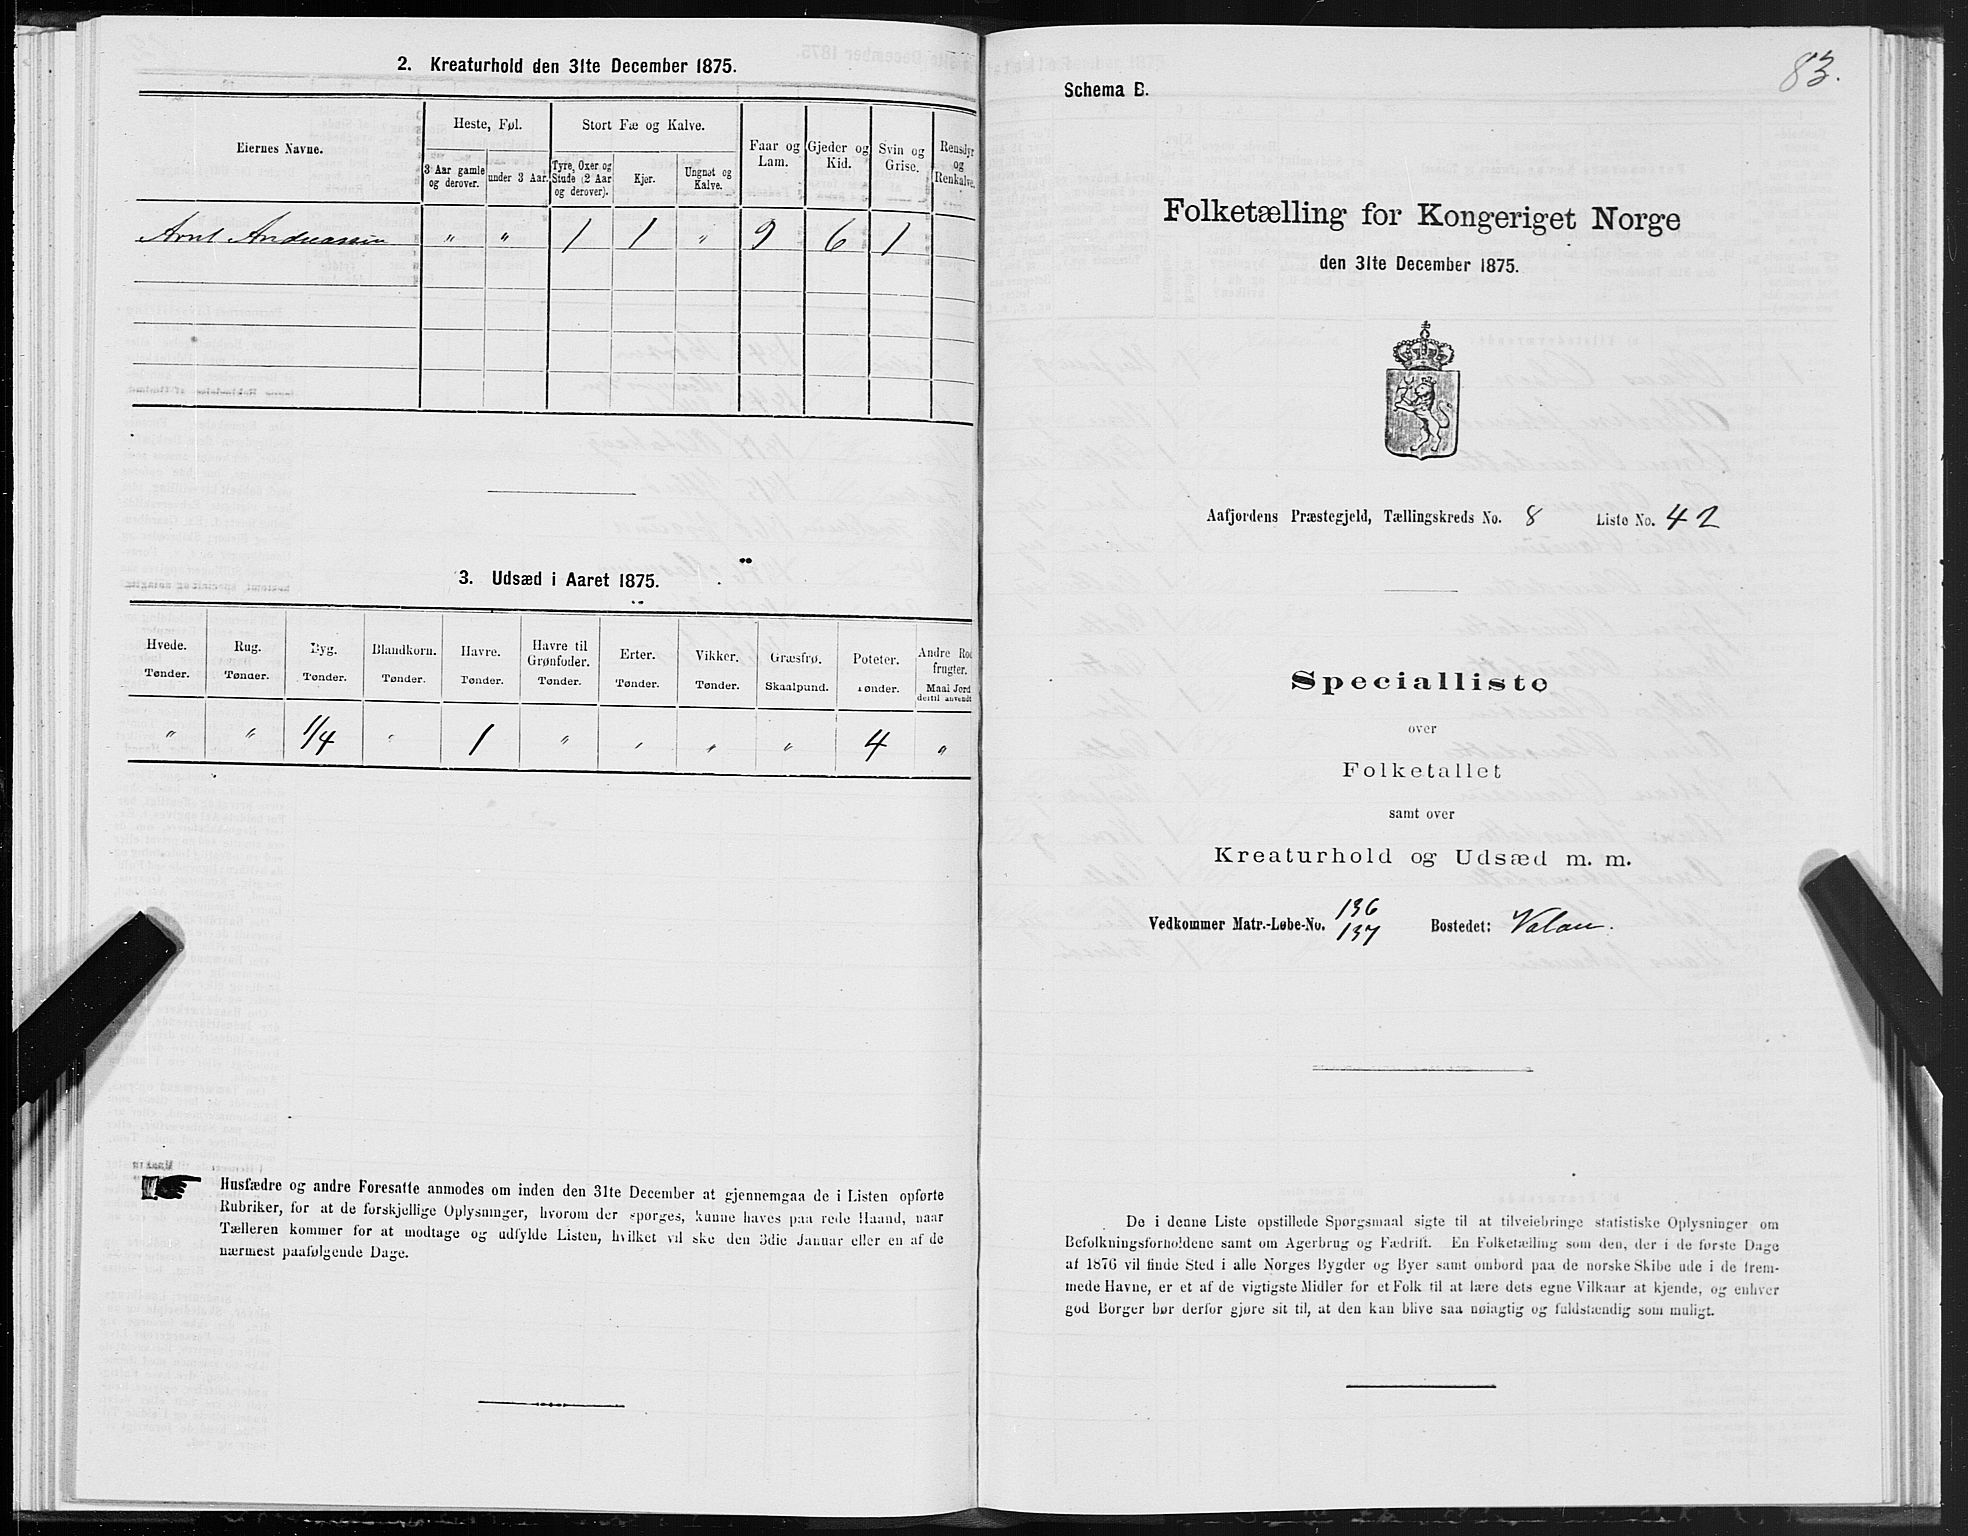 2. Kreaturhold den 31te December 1875.
Eiernes Navne.
Heste, Føl.
Stort Fæ og Kalve.
Faar og Lam.
Gjeder og Kid.
Svin og Grise.
Rensdyr og Renkalve.
3 Aar gamle og derover.
under 3 Aar.
Tyre, Oxer og Stude (2 Aar og derover).
Kjør.
Ungnøt og Kalve.
Arnt Andreassen " " 1 1 " 9 6 1
3. Udsæd i Aaret 1875.
Hvede. Rug. Byg. Blandkorn. Havre. Havre til Grønfoder. Erter. Vikker. Græsfrø. Poteter. Andre Rodfrugter.
Tønder. Tønder. Tønder. Tønder. Tønder. Tønder. Tønder. Tønder. Skaalpund. Tønder. Maal Jord dertil anvendt
" " 1/4 " 1 " " " " 4 "
Husfædre og andre Foresatte anmodes om inden den 31te December at gjennemgaa de i Listen opførte
Rubriker, for at de forskjellige Oplysninger, hvorom der spørges, kunne haves paa rede Haand, naar
Tælleren kommer for at modtage og udfylde Listen, hvilket vil ske den 3die Januar eller en af de
nærmest paafølgende Dage.
83.
Schema B.
Folketælling for Kongeriget Norge
den 31te December 1875.
Aafjordens Præstegjeld, Tællingskreds No. 8 Liste No. 42
Specialliste
over
Folketallet
samt over
Kreaturhold og Udsæd m. m.
Vedkommer Matr.-Løbe-No. 136 137 Bostedet: Valan.
De i denne Liste opstillede Spørgsmaal sigte til at tilveiebringe statistiske Oplysninger om
Befolkningsforholdene samt om Agerbrug og Fædrift. En Folketælling som den, der i de første Dage
af 1876 vil finde Sted i alle Norges Bygder og Byer samt ombord paa de norske Skibe ude i de frem-
mede Havne, er et af de vigtigste Midler for et Folk til at lære dets egne Vilkaar at kjende, og enhver
god Borger bør derfor gjøre sit til, at den kan blive saa nøiagtig og fuldstændig som muligt.